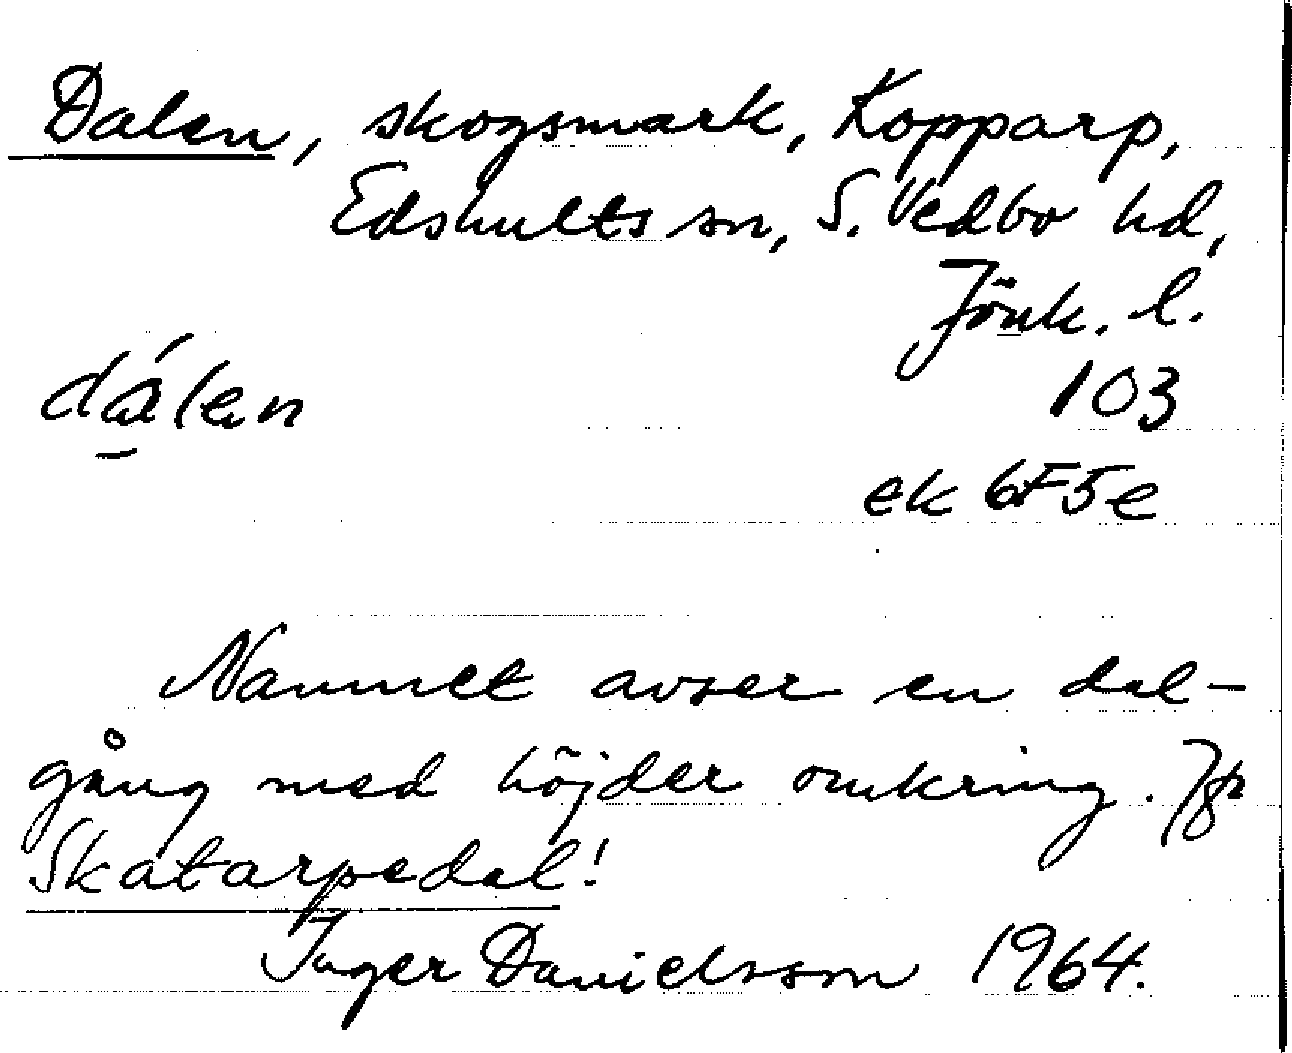 Dalen, skogsmark, Kopparp,
Edshults sn, S. Vedbo hd,
Jönk. l.
dálen
103
ek 6F5e
Namnet avser en dal-
gång med höjder omkring. Jfr
Skatarpedal!
Inger Danielsson 1964.